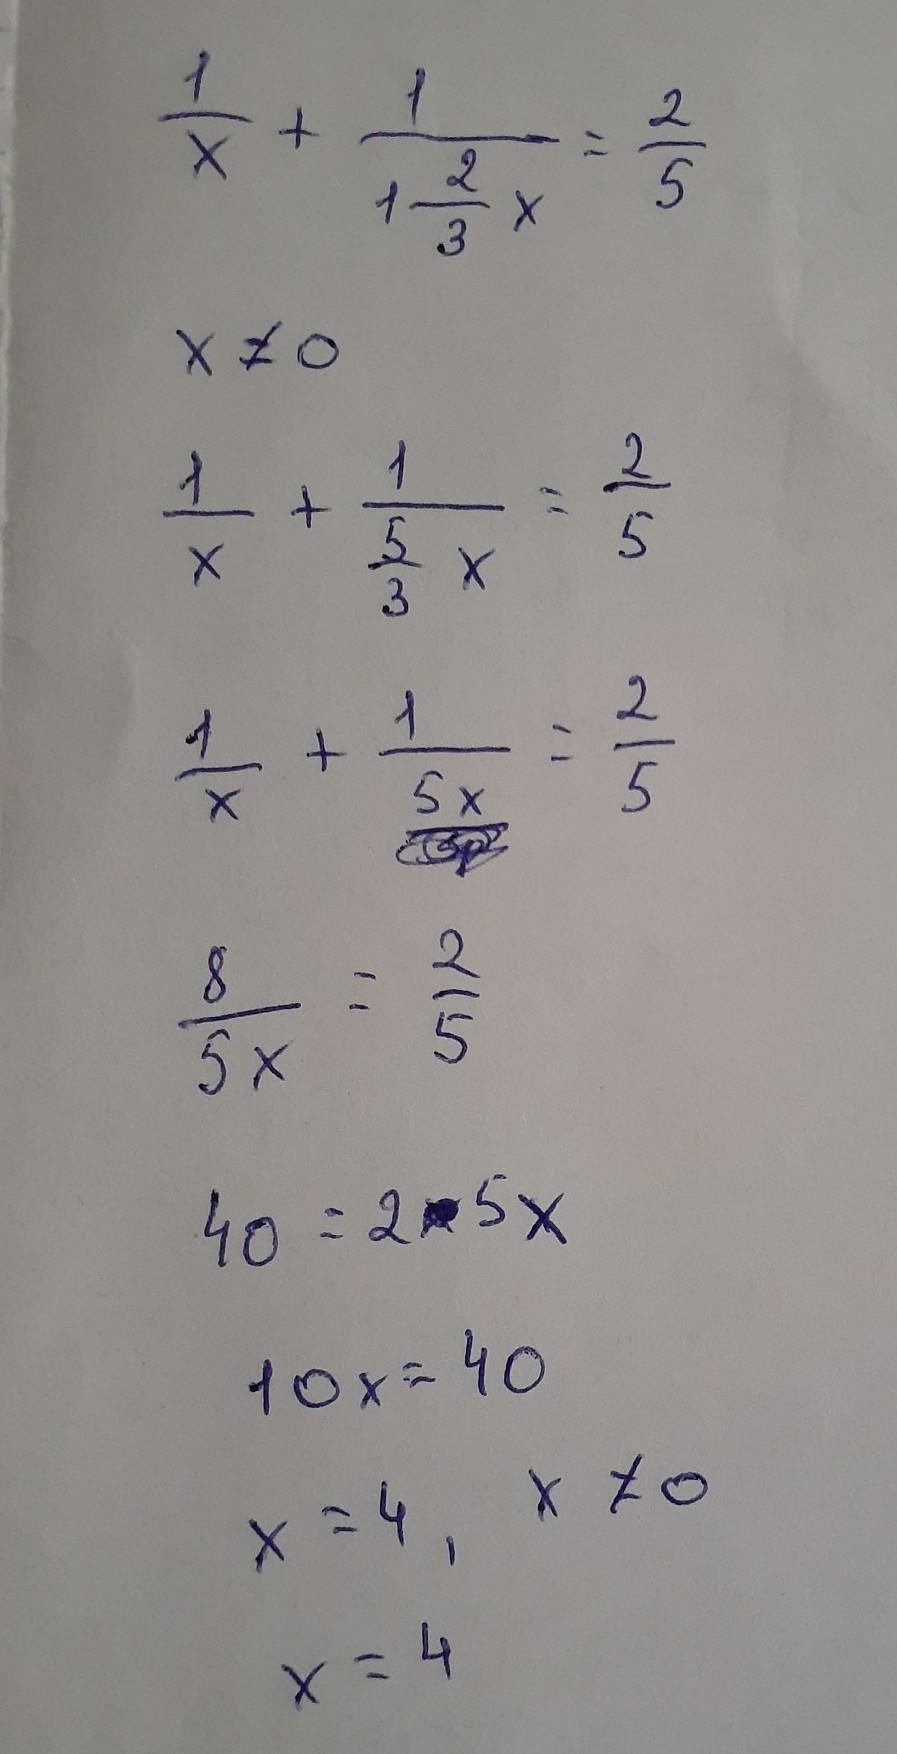 1/x + 1/(1 2/3 x) = 2/5
x ≠ 0
1/x + 1/(5/3 x) = 2/5
1/x + 1/(5x) = 2/5
8/(5x) = 2/5
40 = 2 • 5x
10x = 40
x = 4, x ≠ 0
x = 4